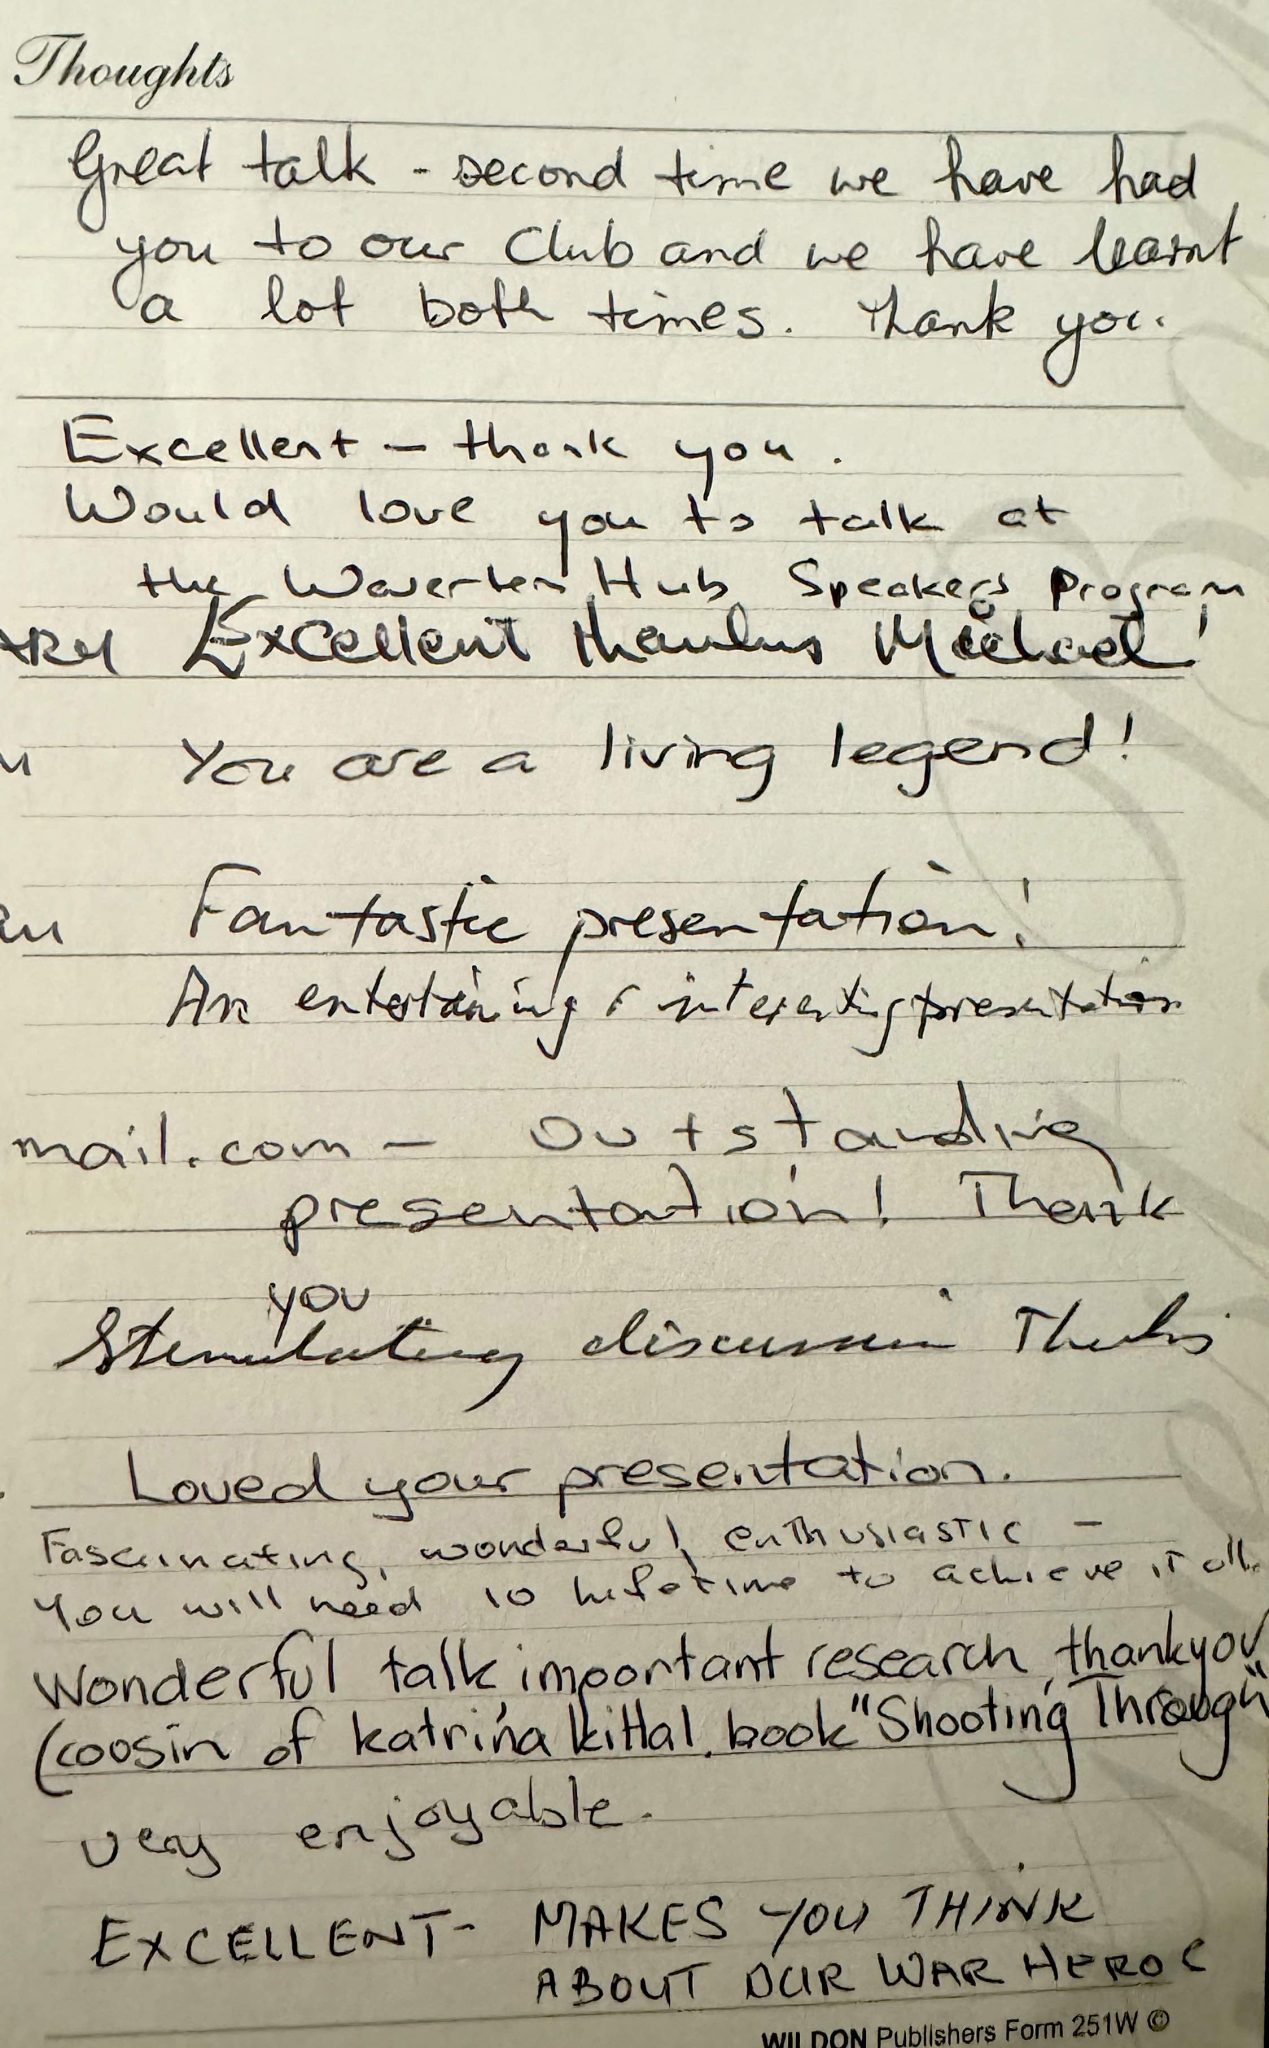 Thoughts
Great talk - second time we have had
you to our Club and we have learnt
a lot both times. Thank you.
Excellent - thank you.
Would love you to talk at
the Waverton Hub Speakers Program
Excellent thanks Michael!
You are a living legend!
Fantastic presentation!
An entertaining & interesting presentation
mail.com - Outstanding
presentation! Thank
you
Stimulating discussion Thanks
Loved your presentation.
Fascinating, wonderful, enthusiastic -
You will need 10 lifetime to achieve it all.
Wonderful talk, important research, thankyou
(coosin of Katrina Kittal. book "Shooting Through"
very enjoyable.
EXCELLENT - MAKES YOU THINK
ABOUT OUR WAR HEROE
WILDON Publishers Form 251W ©